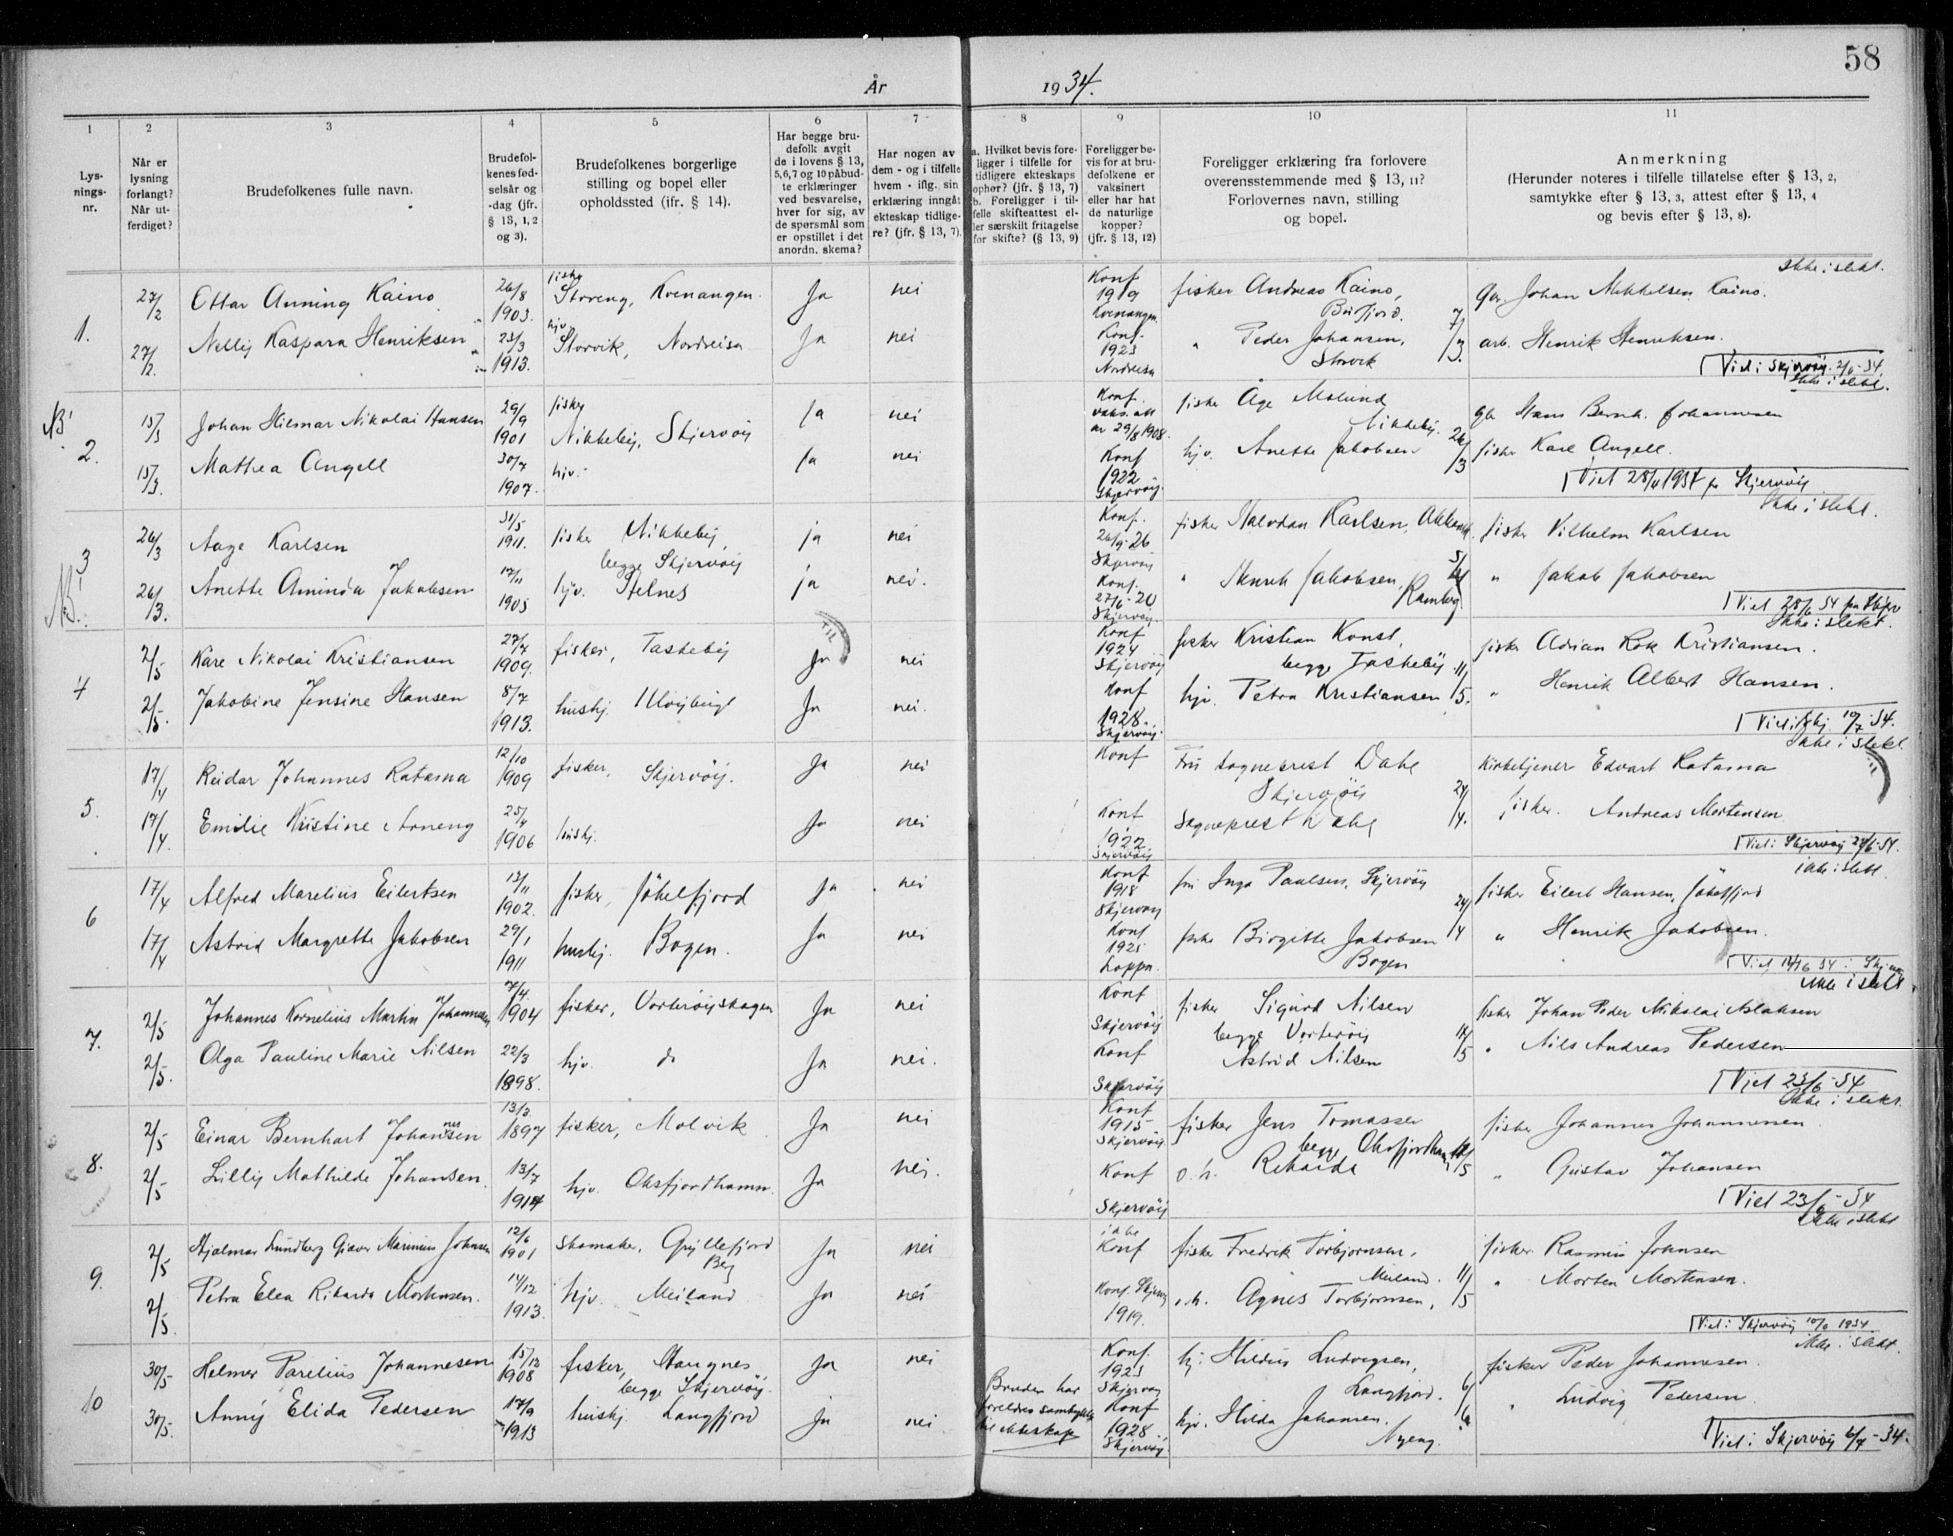 58
År 1934.
1 2 3 4 5 6 7 8 9 10 11
Lysningsnr.
Når er lysning forlangt? Når utferdiget?
Brudefolkenes fulle navn.
Brudefolkenes fødselsår og -dag (jfr. § 13, 1, 2 og 3).
Brudefolkenes borgerlige stilling og bopel eller opholdssted (ifr. § 14).
Har begge brudefolk avgit de i lovens § 13, 5,6,7 og 10 påbudte erklæringer ved besvarelse, hver for sig, av de spørsmål som er opstillet i det anordn. skema?
Har nogen av dem - og i tilfelle hvem - iflg. sin erklæring inngåt ekteskap tidligere? (jfr. § 13, 7).
a. Hvilket bevis foreligger i tilfelle for tidligere ekteskaps ophør? (jfr. § 13, 7) b. Foreligger i tilfelle skifteattest eller særskilt fritagelse for skifte? (§ 13, 9)
Foreligger bevis for at brudefolkene er vaksinert eller har hat de naturlige kopper? (jfr. § 13, 12)
Foreligger erklæring fra forlovere overensstemmende med § 13, 11? Forlovernes navn, stilling og bopel.
Anmerkning (Herunder noteres i tilfelle tillatelse efter § 13, 2, samtykke efter § 13, 3, attest efter § 13, 4 og bevis efter § 13, 8).
Ikke i slekt.
1. 27/2 Ottar Anning Kaino 26/8 1903. fisker Storeng, Kvenangen. Ja nei Konf 1919 Kvenangen fisker Andreas Kaino, Burfjord. Johan Mikkelsen Kaino.
27/2. Nelly Kaspara Henriksen 23/3 1913. hjv. Storvik, Nordreisa Ja nei Konf. 1923 Nordreisa " Peder Johansen, Storvik 7/3. arb. Henrik Henriksen.
Viet i Skjervøy 2/6-34.
Ikke i slekt.
NB!
2. 13/3 Johan Hilmar Nikolai Hansen 29/9 1901 fisker Nikkeby, Skjervøy Ja nei Konf. fisker Åge Molund Nikkeby. gbr Hans Bernh. Johannesen
13/3. Mathea Angell 30/7 1907. hjv. Ja nei Konf 1922 Skjervøy. hjv. Anette Jakobsen 26/3 fisker Kare Angell.
Viet 28/4 1934 Skjervøy
Ikke i slekt.
3 26/3 Aage Karlsen 31/5 1911. fisker Nikkeby begge Skjervøy ja nei Konf. 26/9-26 Skjervøy fisker Halvdan Karlsen, fisker Vilhelm Karlsen
NB!
26/3. Anette Aminda Jakobsen 17/11 1905 hjv. Stelnes ja nei. Konf. 27/6-20 Skjervøy. " Henrik Jakobsen, 5/4 " Jakob Jakobsen
Viet 28/6 34
Ikke i slekt.
4 2/5 Kare Nikolai Kristiansen 27/7 1909. fisker, Taskeby Ja nei Konf 1924 Skjervøy fisker Kristian Konst, begge Taskeby fisker Adrian Rok Kristiansen.
2/5. Jakobine Jensine Hansen 8/7 1913. hushj. Ja nei. Konf 1928. Skjervøy. hjv. Petra Kristiansen 11/5. " Henrik Albert Hansen.
Viet i Skj 10/7-34.
Ikke i slekt.
5. 17/4 Reidar Johannes Ratama 12/10 1909 fisker, Skjervøy. Ja nei Konf Fru sogneprest Dahl Skjervøy Kirketjener Edvart Ratama
17/4. Emilie Kristine Arneng 25/4 1906 hushj. Ja nei Konf 1922. Skjervøy Sogneprest Dahl 24/4. fisker. Andreas Mortensen
Viet i Skjervøy 24/6-34.
ikke i slekt.
6 17/4 Alfred Marelius Eilertsen 13/11 1902. fisker, Jøkelfjord Ja nei Konf 1918 Skjervøy fru Inga Paulsen, Skjervøy fisker Eilert Hansen, Jøkelfjord
17/4 Astrid Margrette Jakobsen 29/1 1911 hushj. Bogen. Ja nei Konf 1925 Loppa. Birgitte Jakobsen Bogen 24/4 " Henrik Jakobsen.
Ikke i slekt
7. 2/5 Johannes Kornelius Martin Johannesen 7/4 1904 fisker, Vorterøyskagen Ja nei Konf Skjervøy fisker Sigurd Nilsen begge Vorterøy fisker Johan Peder Nikolai Aslaksen
2/5. Olga Pauline Marie Nilsen 22/3 1898. hjv. do Ja nei. Konf Skjervøy Astrid Nilsen " Nils Andreas Pedersen
Viet 23/6-34
Ikke i slekt.
8. 2/5 Einar Bernhart Johannessen 13/3. 1897 fisker, Molvik Ja nei Konf 1915 Skjervøy fisker Jens Tomasser begge Oksfjordhamn fisker Johannes Johannessen
2/5 Lilly Mathilde Johansen. 13/7 1914 hjv. Oksfjordhamn. Ja nei. Konf Skjervøy o. h. Rikarda " Gustav Johansen
Viet 23/6-34
Ikke i slekt
9. 2/5 Hjalmar Lundberg Giæver Marinius Johansen 12/6 1901 skomaker, Gryllefjord Berg Ja nei ikke Konf fisker Fredrik Torbjørnsen, Meiland. fisker Rasmus Johnsen
2/5. Petra Elea Rikarda Mortensen. 14/12 1913. hjv. Meiland Ja nei Konf. Skjervøy 1919. o. h. Agnes Torbjørnsen, 11/5 " Morten Mortensen.
Viet i Skjervøy 1934
Ikke i slekt.
10 30/5 Helmer Parelius Johannesen 15/12 1908 fisker, Haugnes begge Skjervøy. Ja nei Konf. 1923 Skjervøy hj. Hildur Ludvigsen, Langfjord. fisker Peder Johannesen.
30/5. Anny Elida Pedersen 17/9 1913 hushj. Langfjord Ja nei Bruden har foreldres samtykke til ekteskap Konf 1928. Skjervøy. hjv. Hilda Johansen. 6/6 " Ludvig Pedersen
Viet i Skjervøy 6/7-34.